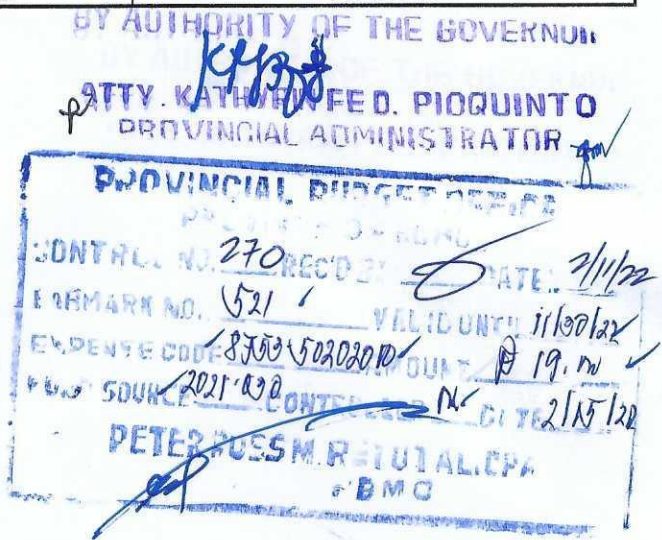 BY AUTHORITY OF THE GOVERNOR
ATTY. KATHVEIN FE D. PIOQUINTO
PROVINCIAL ADMINISTRATOR
PROVINCIAL BUDGET OFFICE
CONTROL NO. 270 REC'D BY DATE: 2/11/22
EARMARK NO. 521 VALID UNTIL 11/30/22
EXPENSE CODE 8753-50202010 AMOUNT ₱ 19.
FUND SOURCE 2021-030 CONTROLLED DATE 2/15/22
PETER ROSS M. RETUTAL, CPA
PBMO